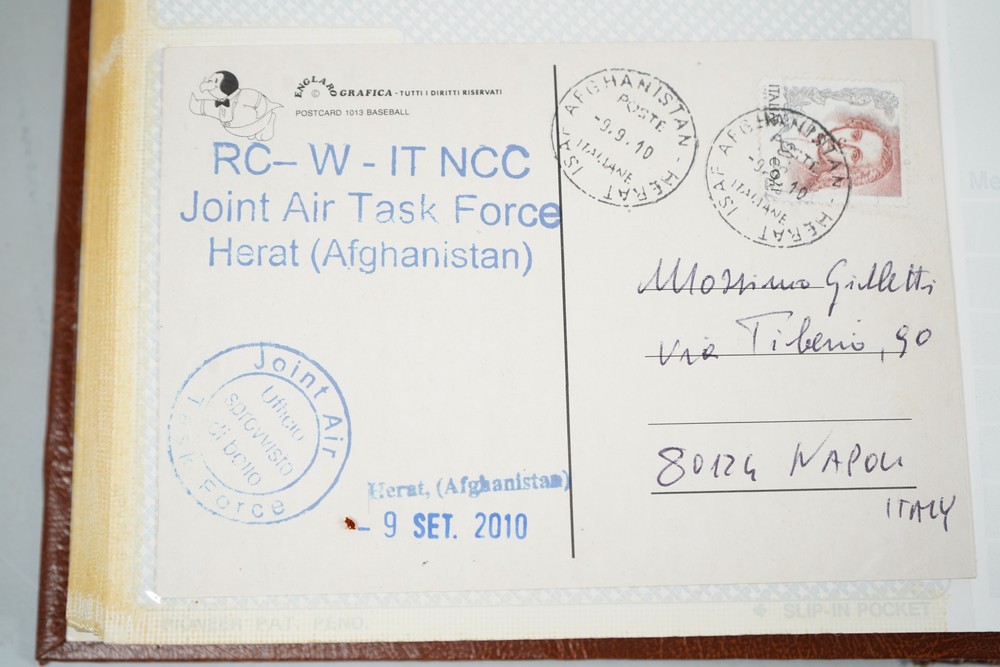 ENGLARO
© GRAFICA - TUTTI I DIRITTI RISERVATI
POSTCARD 1013 BASEBALL
RC- W - IT NCC
Joint Air Task Force
Herat (Afghanistan)
ISAF AFGHANISTAN - HERAT
POSTE
-9.9.10
ITALIANE
ISAF AFGHANISTAN - HERAT
POSTE
-9.9.10
ITALIANE
Massimo Gilletti
Via Tiberio, 90
80124 NAPOLI
ITALY
Joint Air Task Force
Ufficio
sprovvisto
di bollo
Herat, (Afghanistan)
- 9 SET. 2010
PIONEER PAT. PEND.
SLIP-IN POCKET